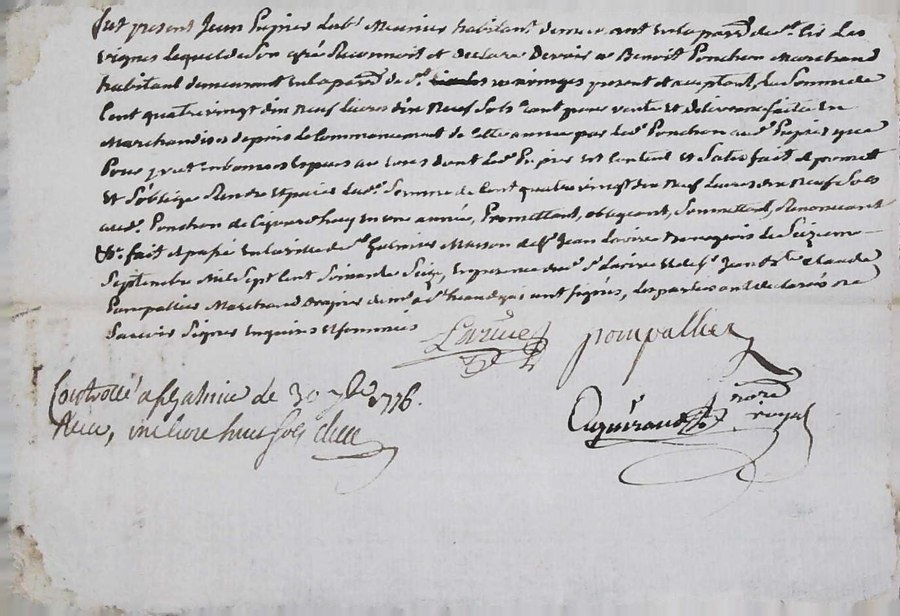 fut present Jean Pupier Lab.r Meunier habitant demeurant en la paroisse de S.t
vignes lequel de son gré Reconnoit et declare devoir a Benoit Ponchon Marchand
habitant demeurant en la par.sse de S.t present et acceptant, La Somme de
Cent quatre vingt dix Neuf Livres dix Neuf Sols tant pour vente et delivrance faite en
Marchandises depuis le Commancement de cette année par led. Ponchon aud. Pupier que
Pour pret en bonnes espèces au cours dont led. Pupier est Content et Satisfait et promet
et S'oblige Rendre et paier lad. Somme de Cent quatre vingt dix Neuf Livres dix Neuf Sols
aud. Ponchon de Ce jourdhuy en une année, Promettant, obligeant, Soumettant, Renonceant
&c. fait et passé en la ville de S.t Galmier Maison de S.r Jean Bourgeois le Seizieme
Septembre Mil Sept Cent Soixante Seize, en presence dud. S.r Larive et de S.r Jean Claude
Pompallier Marchand dud. S.t ont signés, les parties ont declaré ne
Savoir Signer enquis et sommés
Larive pompallier
Controllé a S.t Galmier le 30 7bre 1776.
Recu, une livre huit sols
not.re
royal